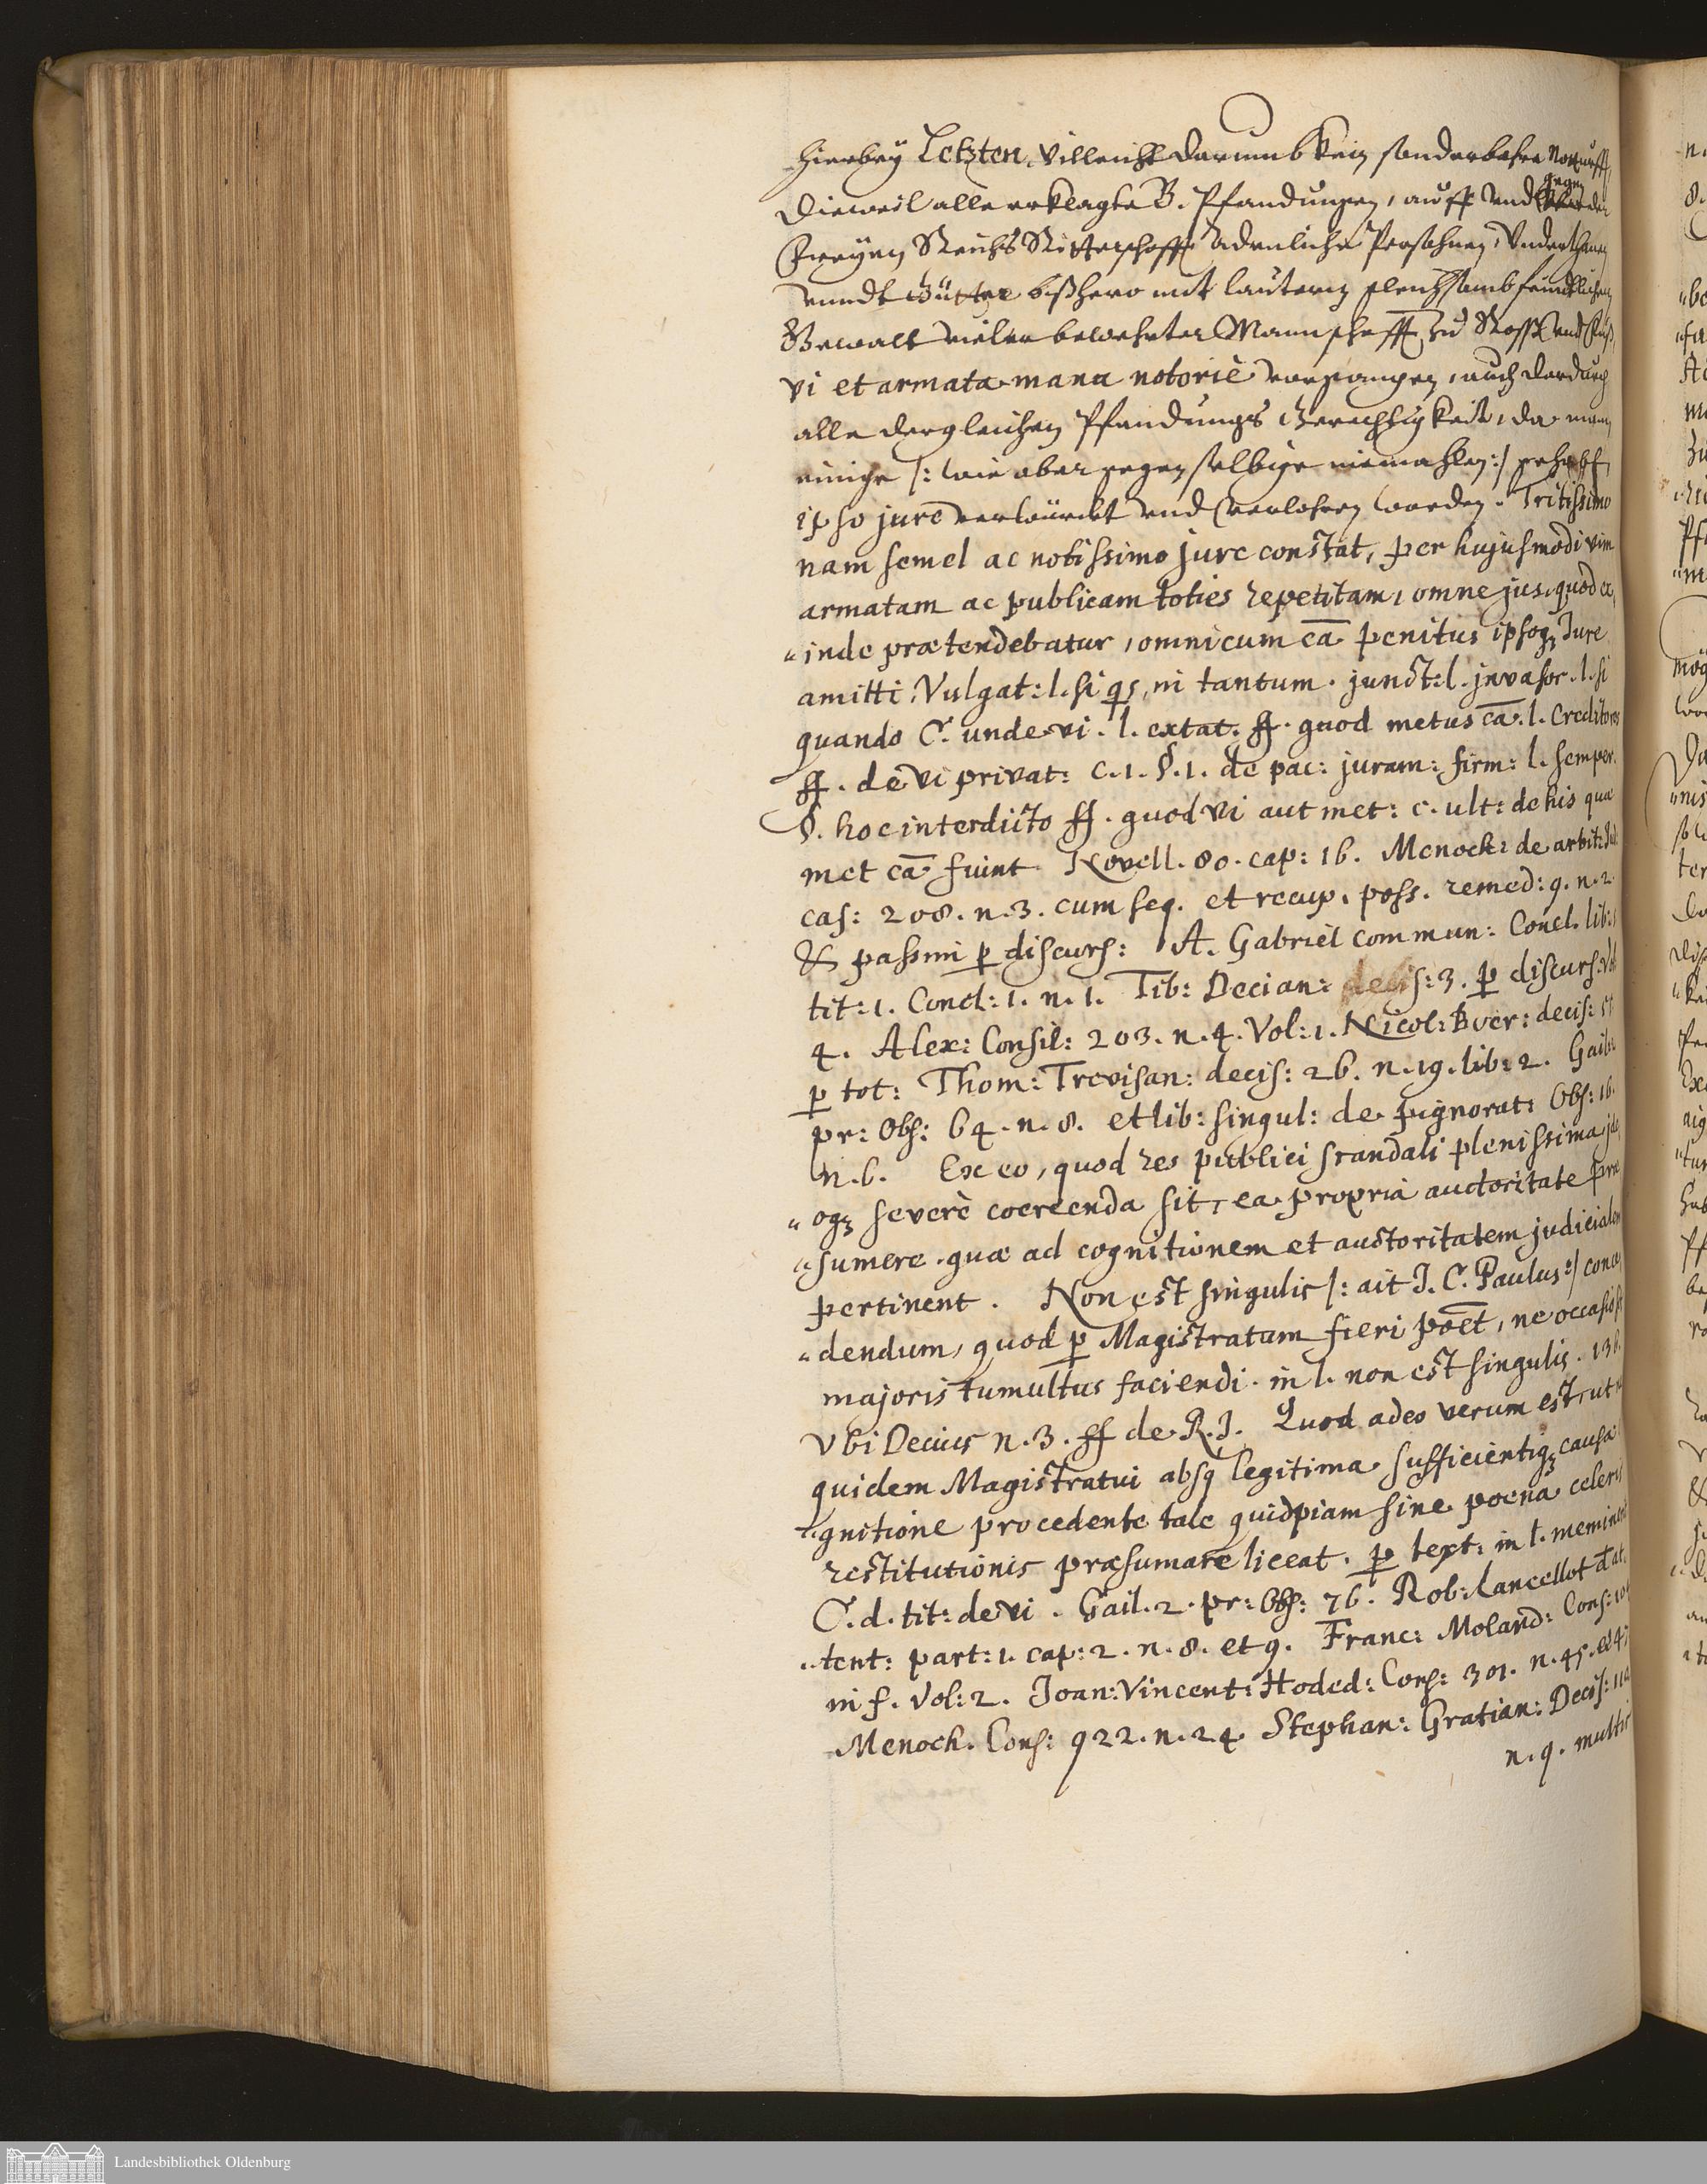 hierbey Letzten, Villeicht darumb kein sonderbahre Notturfft,
Dieweil alle erklagte B. Pfandungen, auff vnd gegen der
Freyen Reichs Ritterschafft Adenliche Persohnen, Underthanen
vnndt Gütter bißhero mit lautern gleichsamb feindtlichen
Gewalt vieler bewehrter Mannschafft zu Roß vnd Fuß,
vi et armata manu notoriè vorgangen, auch dardurch
alle dergleichen Pfandungs Gerechtigkeit, da mann
einige /: wie aber gegen selbige niemahlen :/ gehabt
ipso jure verwürckt vnd verlohren worden. Tritissimo
nam semel ac notissimo jure constat, per hujusmodi vim
armatam ac publicam toties repetitam, omne jus, quod ex,
"inde prætendebatur, omni cum cā penitus ipsoq₃ Jure
amitti. Vulgat: l. si qs, in tantum. junct: l. invasor. l. si
quando C. unde vi. l. extat. ff. quod metus cā. l. Creditores
ff. de vi privat: c. 1. §. 1. de pac: juram: firm: l. semper.
§. hoc interdicto ff. quod vi aut met: c. ult: de his quæ
met cā fiunt Novell. 80. cap: 16. Menoch: de arbit: Jud.
cas: 208. n. 3. cum seq. et recup. poss. remed: 9. n. 2.
& passim p discurs: A. Gabriel commun: Concl. lib:
tit: 1. Concl: 1. n. 1. Tib: Decian: decis: 3. p discurs: Vol
4. Alex: Consil: 203. n. 4. Vol: 1. Nicol: Boer: decis:
p tot: Thom: Trevisan: decis: 26. n. 19. lib: 2. Gail:
pr: Obs: 64. n. 8. et lib: singul: de pignorat: Obs: 16.
n. 6. Ex eo, quod res publici scandali plenissima id,
"oq₃ severè coercenda sit, ea propria auctoritate præ
"sumere quæ ad cognitionem et auctoritatem judicialem
pertinent. Non est singulis /: ait J. C. Paulus :/ conce,
"dendum, quod p Magistratum fieri poēt, ne occasio sit
majoris tumultus faciendi. in l. non est singulis. 136.
Vbi Decius n. 3. ff de R. J. Quod adeo verum est, ut n
quidem Magistratui absq legitima sufficientiq₃ causæ
"gnitione procedente tale quidpiam sine poena celeris
restitutionis præsumare liceat. p text: in l. meminerint
C. d. tit: de vi. Gail. 2. pr: Obs: 76. Rob: Lancellot d at.
"tent: part: 1. cap: 2. n. 8. et 9. Franc: Moland: Cons: 10
in f. Vol: 2. Joan: Vincent: Hoded: Cons: 301. n. 45. et 47
Menoch. Cons: 922. n. 24. Stephan: Gratian: Decis: 114
n. 9. multis
Landesbibliothek Oldenburg